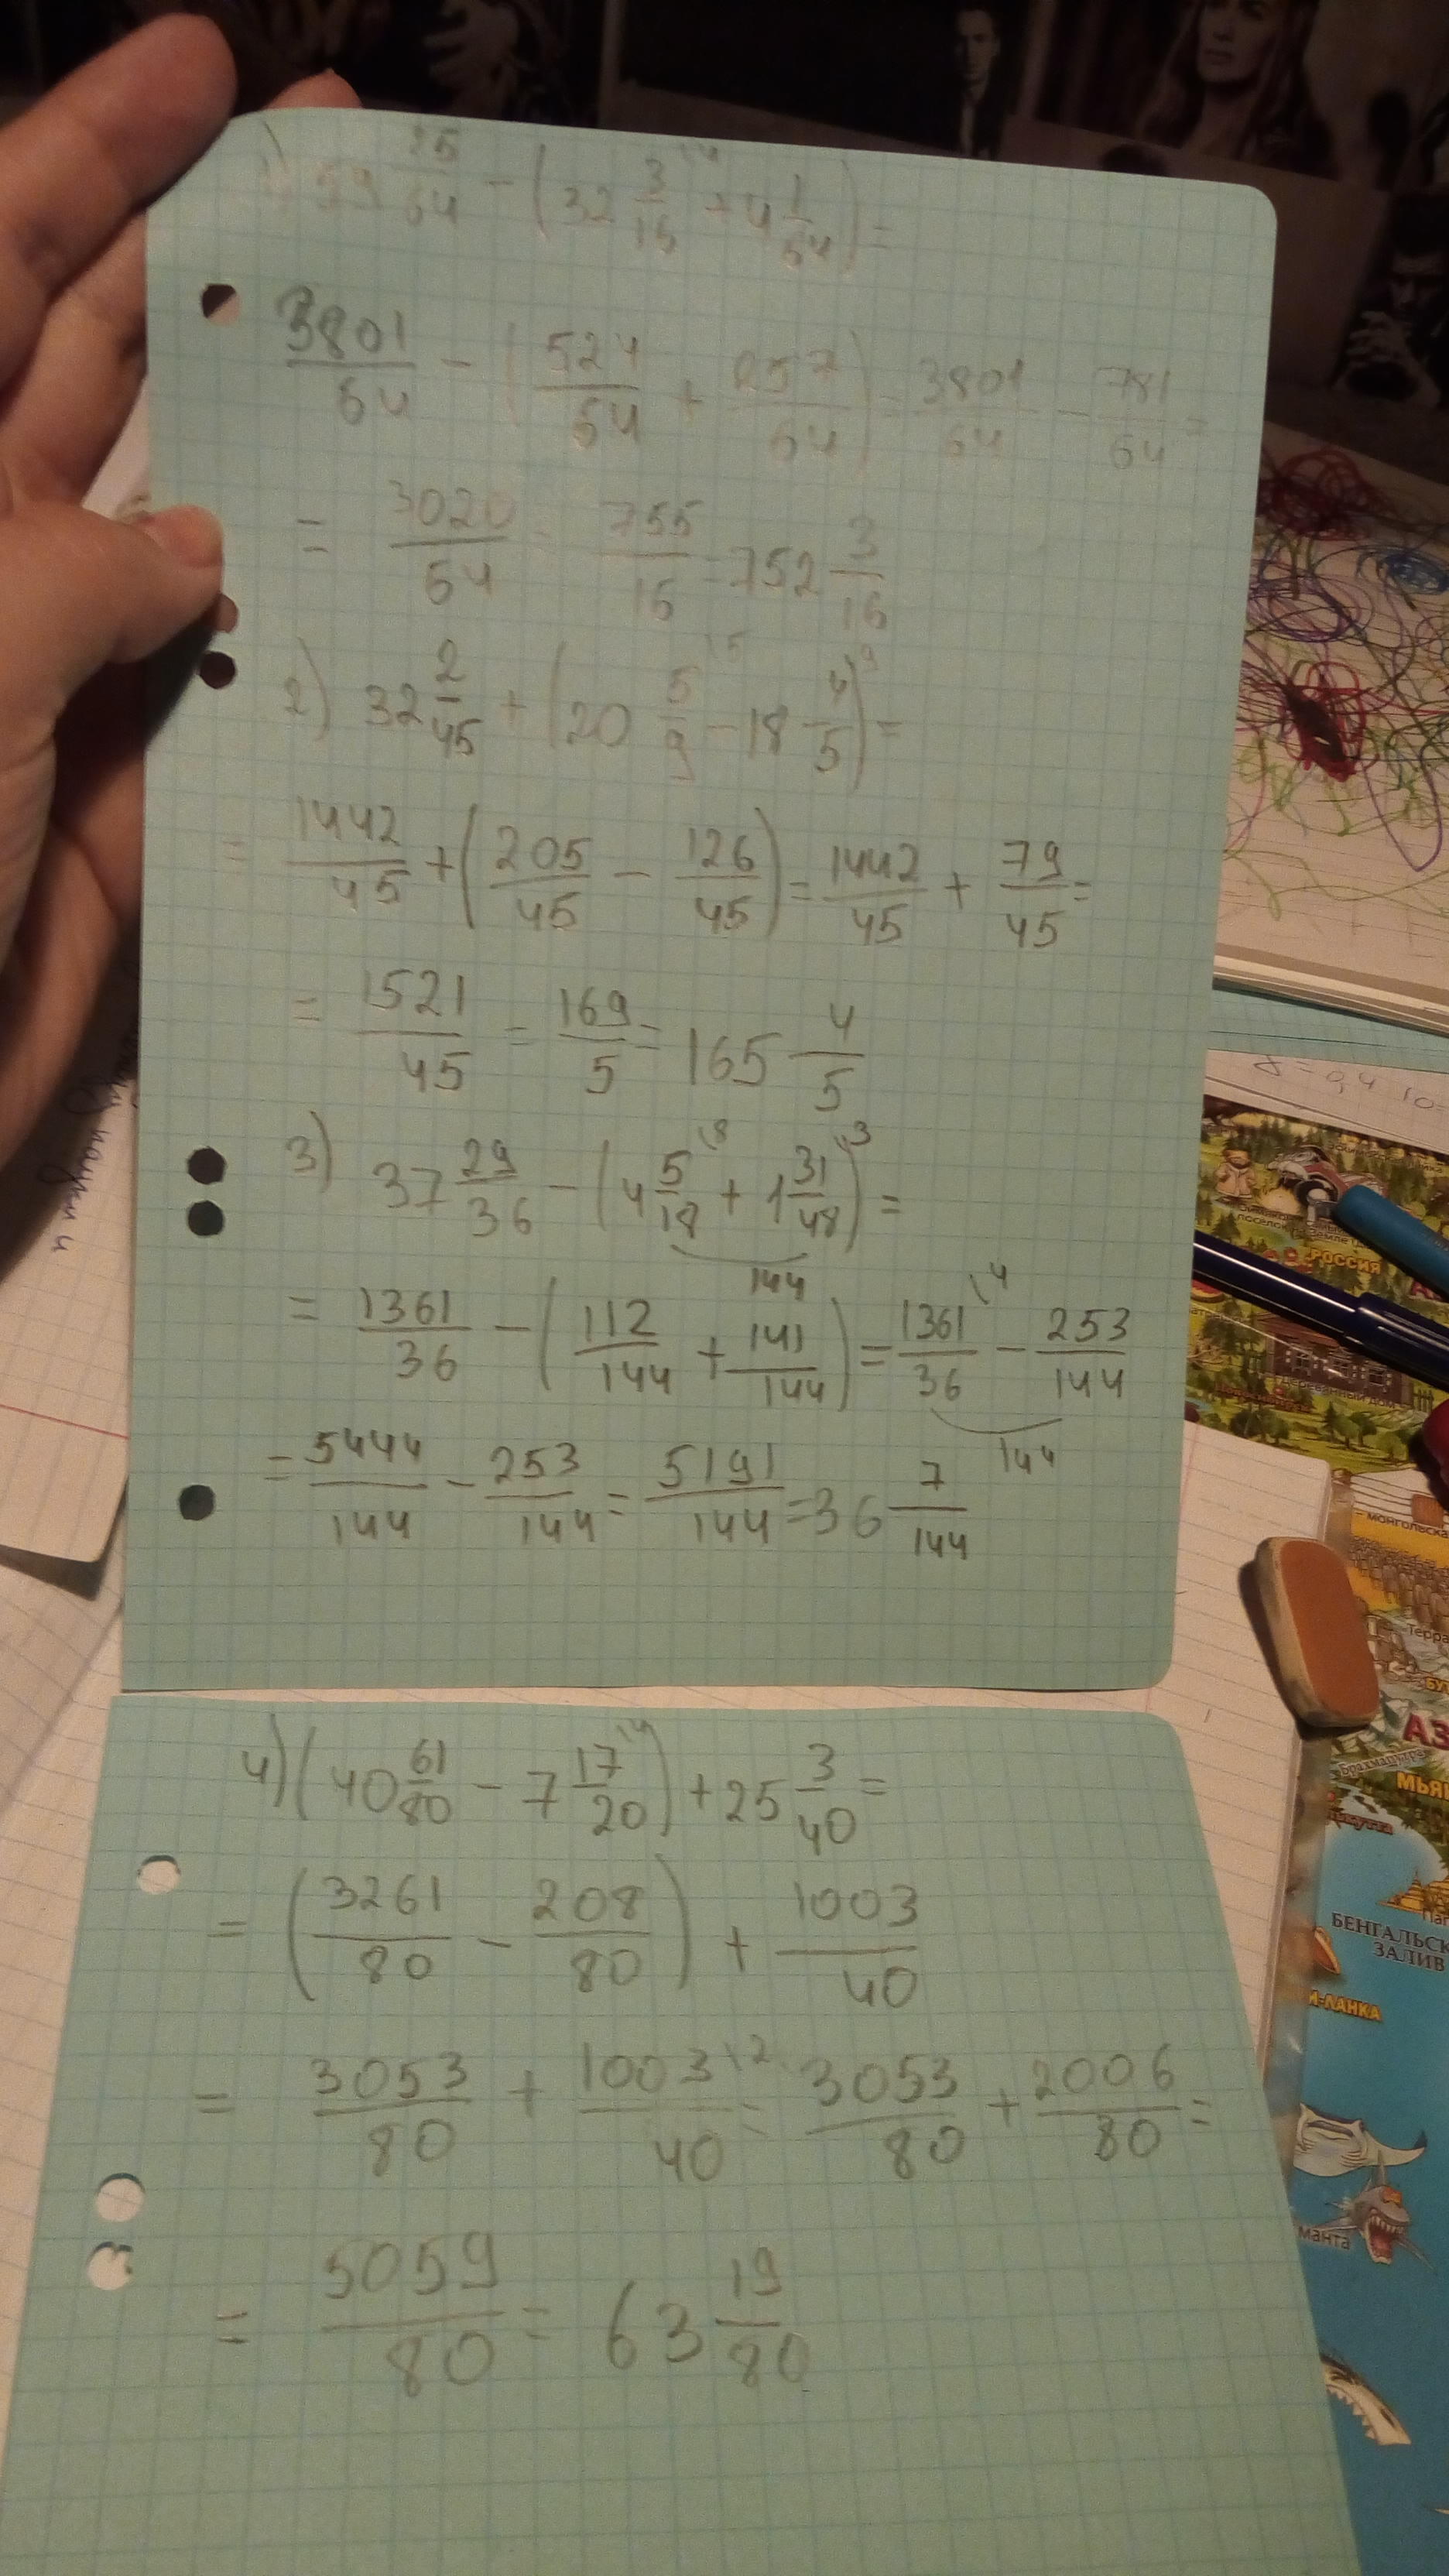 1) 59 25/64 - (32 3/16 \4 + 4 1/64) =
3801/64 - (524/64 + 257/64) = 3801/64 - 781/64 =
= 3020/64 = 755/16 = 752 3/16
2) 32 2/45 + (20 5/9 \5 - 18 4/5 \9) =
= 1442/45 + (205/45 - 126/45) = 1442/45 + 79/45 =
= 1521/45 = 169/5 = 165 4/5
3) 37 29/36 - (4 5/18 \8 + 1 31/48 \3) =
144
= 1361/36 - (112/144 + 141/144) = 1361/36 \4 - 253/144
144
= 5444/144 - 253/144 = 5191/144 = 36 7/144
4) (40 61/80 - 7 17/20 \4) + 25 3/40 =
= (3261/80 - 208/80) + 1003/40
= 3053/80 + 1003/40 \2 = 3053/80 + 2006/80 =
= 5059/80 = 63 19/80
8 = 0,4 10
РОССИЯ
МОНГОЛЬСКА
БЕНГАЛЬСК
ЗАЛИВ
И-ЛАНКА
манта